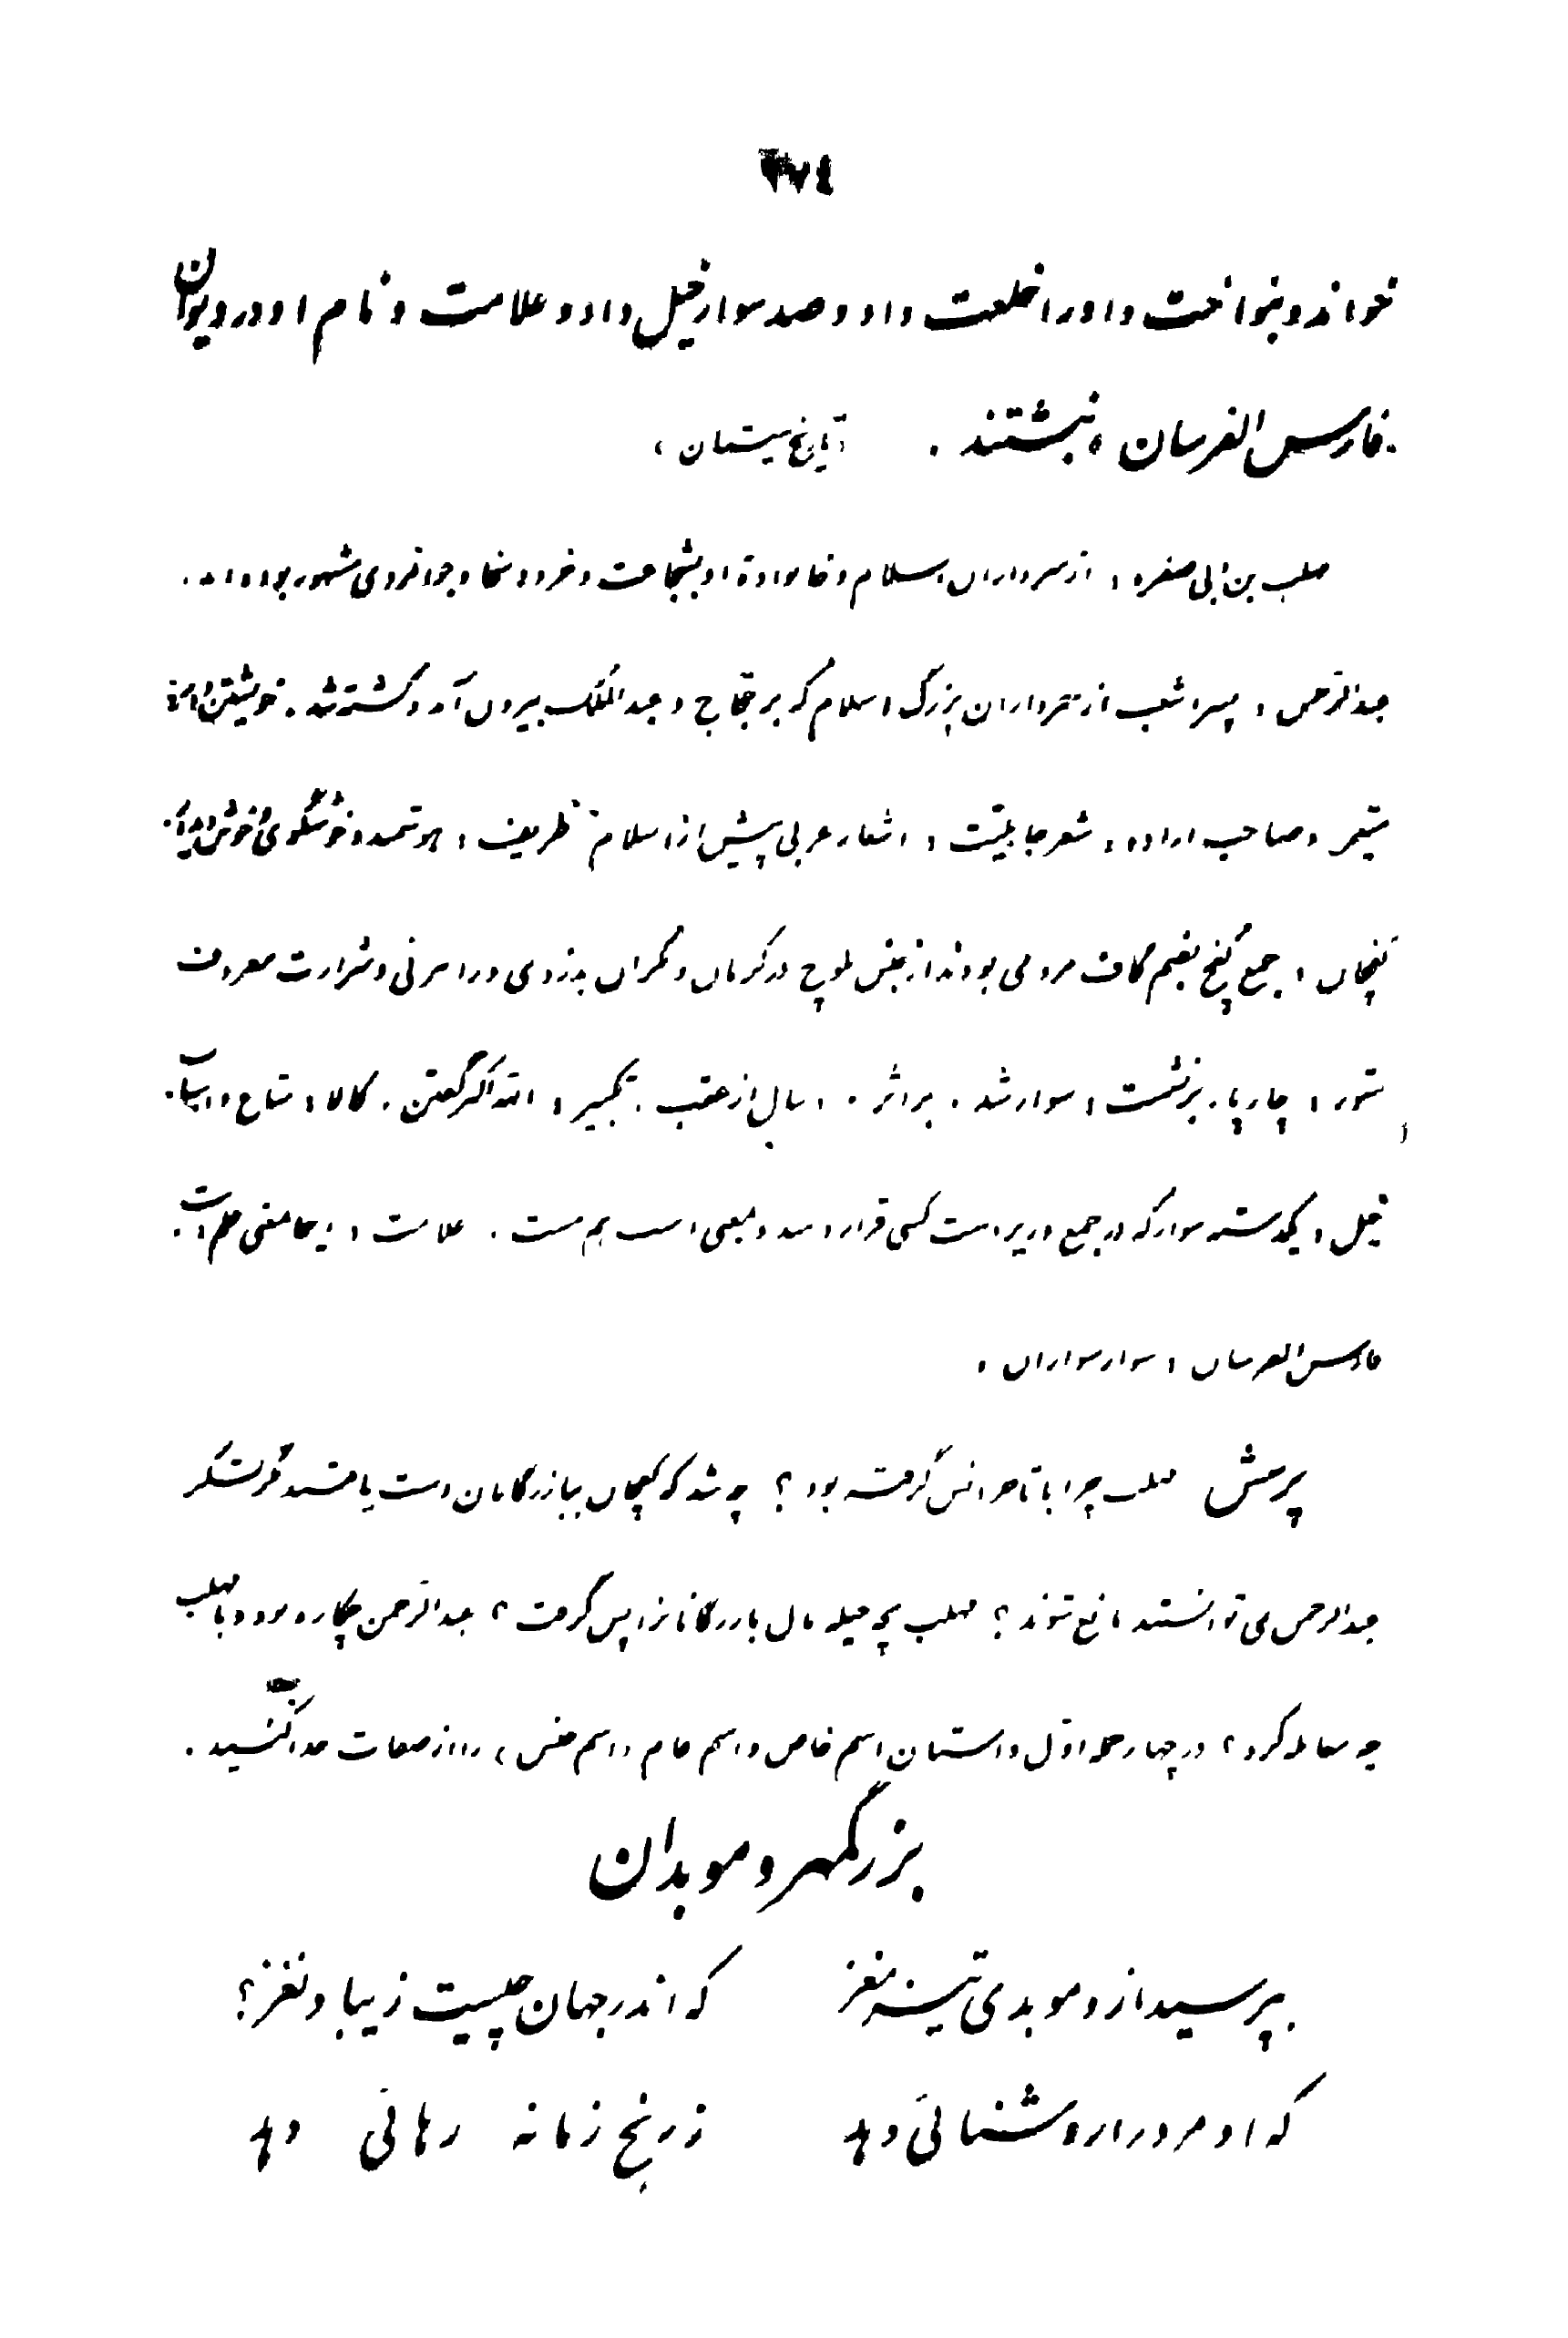 ۲۷٤
خواند و بنواخت و او را خلعت داد و صد سوار خیل داد و علامت و نام او در دیوان
فارس الفرسان ، نبشتند . « تاریخ سیستان »
مهلب بن ابی صفره ، از سرداران اسلام و خانوادهٔ او بشجاعت و خرد و سخا و جوانمردی مشهور بوده است .
عبدالرحمن ، پسر اشعب از سرداران بزرگ اسلام که بر حجاج و عبدالملک بیرون آمد و کشته شد . خویشتن‌دار
متیمر ، صاحب اراده ، شعر جاهلیت ، اشعار عربی پیش از اسلام . ظریف ، هوشمند و خوشگوی و خوش
کفچان ، جمع کفج بضم کاف مردمی بودند از جنس بلوچ در کرمان و مکران بدزدی و راهزنی و شرارت معروف
ستور ، چارپا . برنشست ، سوار شد . براثر . دنبال از عقب . تکبیر ، الله اکبر گفتن . کالا ، متاع و اسباب .
خیل ، یکدسته سوار که در جمع و زیردست کسی قرار دهند و بمعنی اسب هم هست . علامت ، اینجا بمعنی علم است .
فارس الفرسان ، سوار سواران .
پرسش مهلب چرا با تاجر انس گرفته بود ؟ چه شد که کفچان ببازرگانان دست یافتند مگر لشگر
عبدالرحمن می‌توانستند مانع شوند ؟ مهلب بچه حیله مال بازرگانان را پس گرفت ؟ عبدالرحمن چکاره بود و با مهلب
چه معامله کرد ؟ در چهار جملهٔ اول داستان اسم خاص و اسم عام « اسم جنس » را از صفات جدا کنید .
بزرگمهر و موبدان
بپرسید از و موبدی تیز مغز که اندر جهان چیست زیبا و نغز ؟
که او مرد را روشنائی دهد ز رنج زمانه رهائی دهد